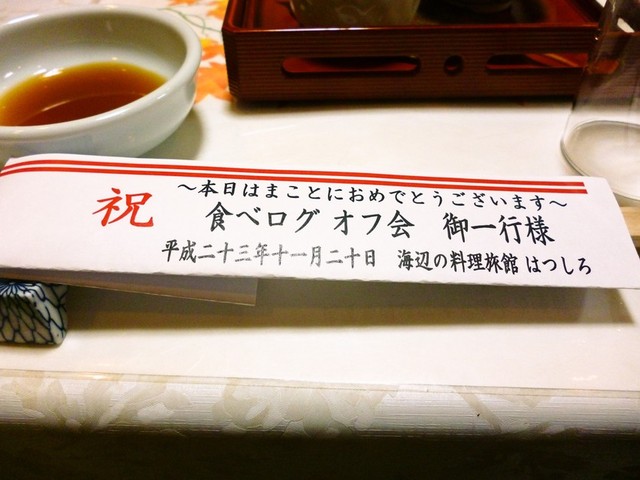 祝
～本日はまことにおめでとうございます～
食べログ オフ会 御一行様
平成二十三年十一月二十日 海辺の料理旅館 はつしろ